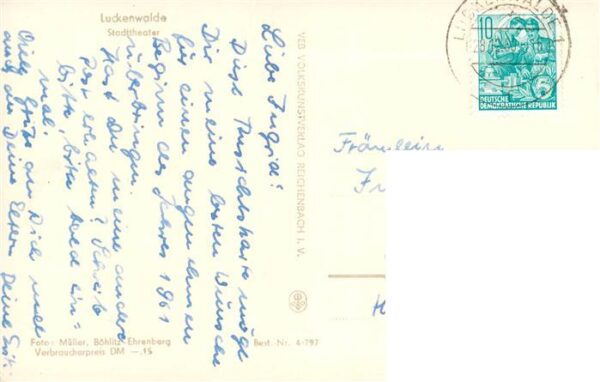 Luckenwalde
Stadttheater
Liebe Ingrid!
Diese Ansichtskarte möge
Dir meine besten Wünsche
für einen angenehmen
Beginn des Jahres 1961
überbringen.
Hast Du meine andere
Post erhalten? Schreib
bitte, bitte bald ein-
mal.
Viele Grüße an Dich und
auch an Deine Eltern Deine
Foto: Müller, Böhlitz Ehrenberg
Verbraucherpreis DM —.15
Best.-Nr. 4-797
VEB VOLKSKUNSTVERLAG REICHENBACH I. V.
LUCKENWALDE 1
10
DEUTSCHE
DEMOKRATISCHE REPUBLIK
Fräulein